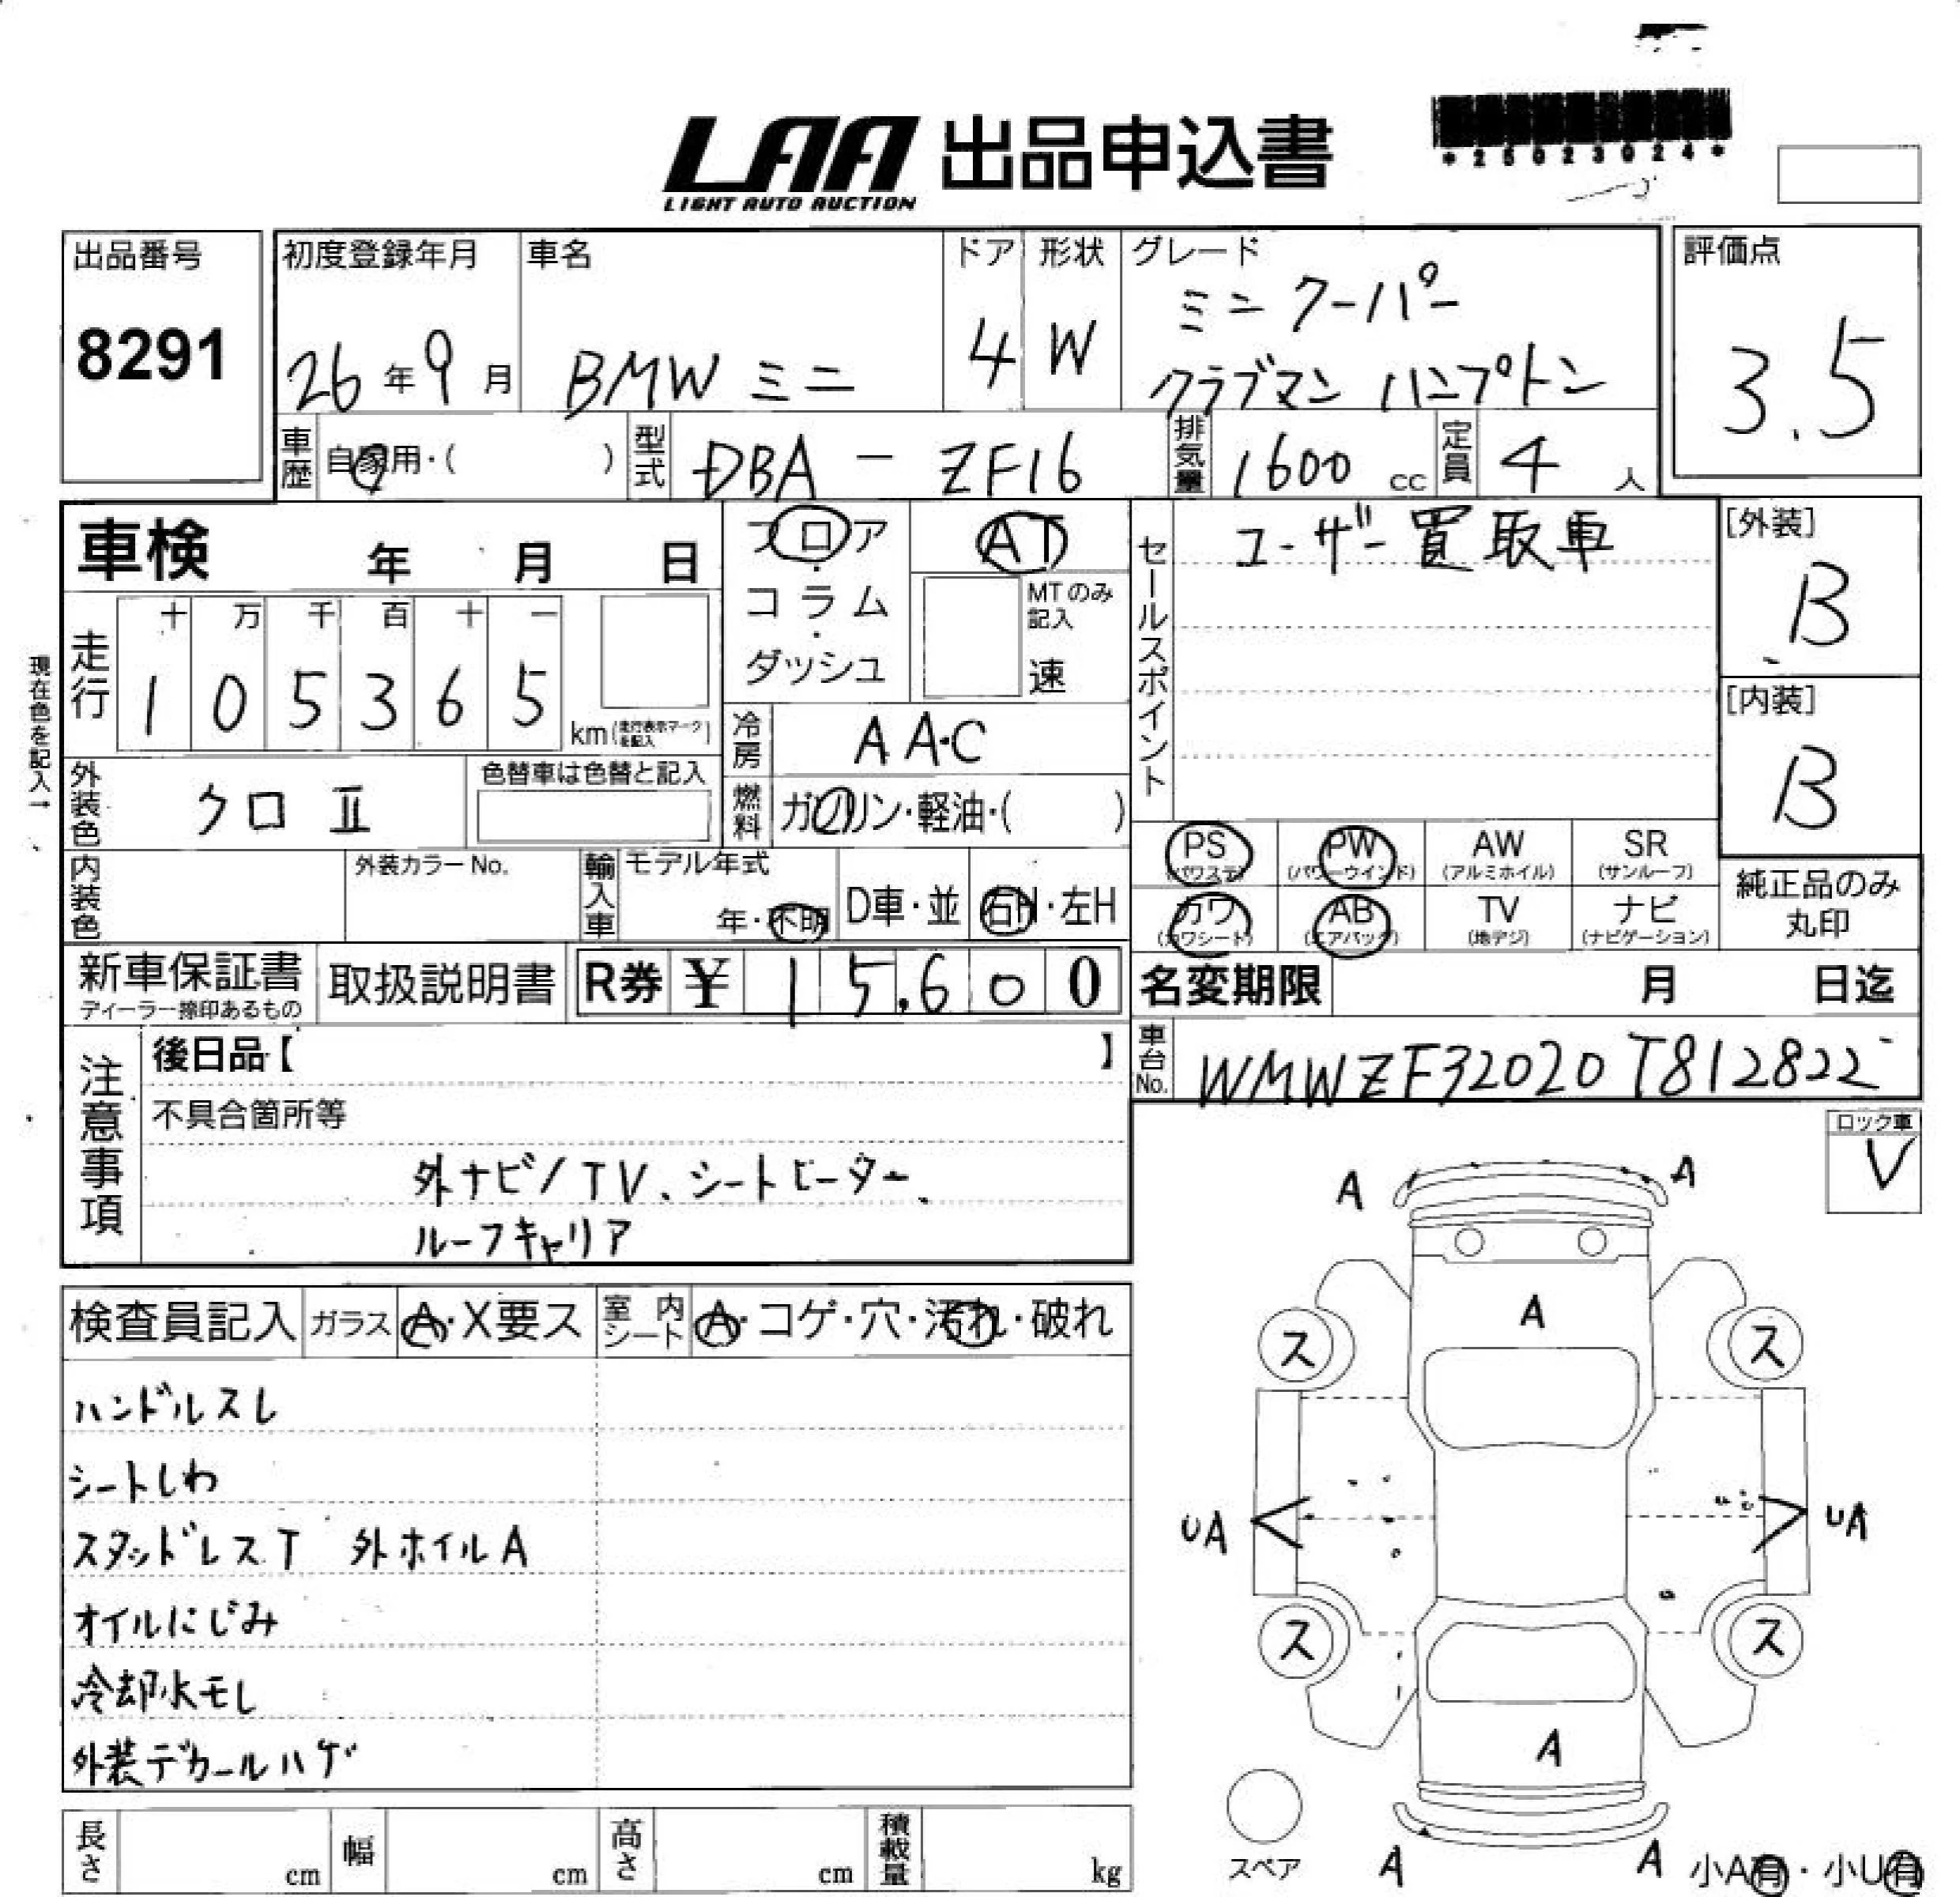 LAA 出品申込書
LIGHT AUTO AUCTION
*25023024*
出品番号
8291
初度登録年月
26年9月
車名
BMW ミニ
ドア
4
形状
W
グレード
ミニ クーパー
クラブマン ハンプトン
評価点
3.5
車歴
自家用・( )
型式
DBA - ZF16
排気量
1600 cc
定員
4 人
車検 年 月 日
フロア・コラム・ダッシュ
AT
MTのみ記入
速
セールスポイント
ユーザー買取車
[外装]
B
[内装]
B
現在色を記入→
走行
十 万 千 百 十 一
1 0 5 3 6 5
km(走行表示マークを記入)
冷房
AAC
燃料
ガソリン・軽油・( )
外装色
クロ II
色替車は色替と記入
内装色
外装カラーNo.
輸入車
モデル年式
年・不明
D車・並
右H・左H
PS (パワステ)
PW (パワーウインド)
AW (アルミホイル)
SR (サンルーフ)
カワ (カワシート)
AB (エアバッグ)
TV (地デジ)
ナビ (ナビゲーション)
純正品のみ
丸印
新車保証書
ディーラー捺印あるもの
取扱説明書
R券 ¥ 15,600
名変期限 月 日迄
車台No.
WMWZF32020T812822
注意事項
後日品【 】
不具合箇所等
外ナビ/TV、シートヒーター、
ルーフキャリア
ロック車
V
検査員記入
ガラス
A・X要ス
室内シート
A・コゲ・穴・汚れ・破れ
ハンドルスレ
シートしわ
スタッドレスT 外ホイルA
オイルにじみ
冷却水モレ
外装デカールハゲ
A A
A
ス ス
UA UA
ス ス
A
A A
スペア
小A有・小U有
長さ cm
幅 cm
高さ cm
積載量 kg